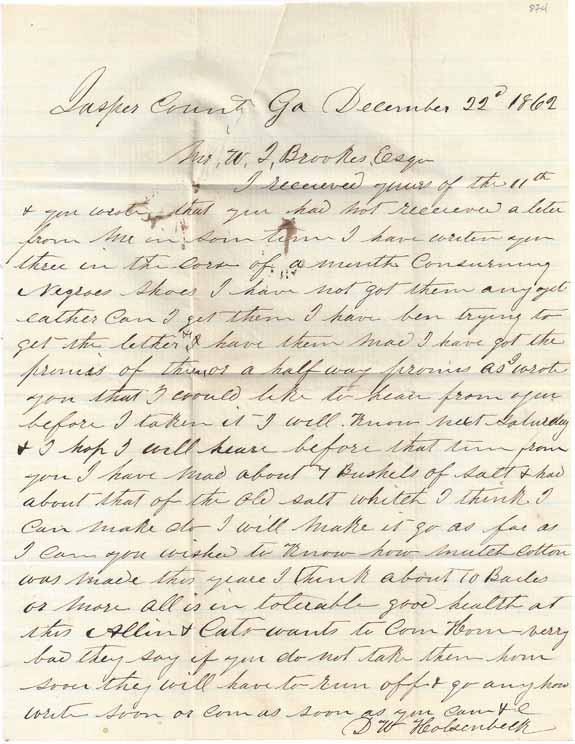 874
Jasper County Ga December 22d 1862
Mr. W. T. Brookes, Esqr
I recieved yours of the 11th
& you wrote that you had not recieved a leter
from Me in som tim I have writen you
three in the cors of a month Consurning
Negroes Shoes I have not got them any yet
eather Can I get them I have ben trying to
get the lether & have them mad I have got the
promis of them or a half way promis as I wrote
you that I would like to hear from you
before I taken it I will Know next Saturday
& I hop I will heare before that tim from
you I have mad about 7 Bushels of Salt & had
about that of the old salt whitch I think I
can make do I will make it go as far as
I can you wished to Know how mutch Cotton
was made this yeare I think about 10 Bailes
or more all is in tolerable good health at
this Allin & Cato wants to Com Hom verry
bad they say if you do not take them hom
soon they will have to run off & go any how
write soon or com as soon as you can &c
D W Holsenbeck